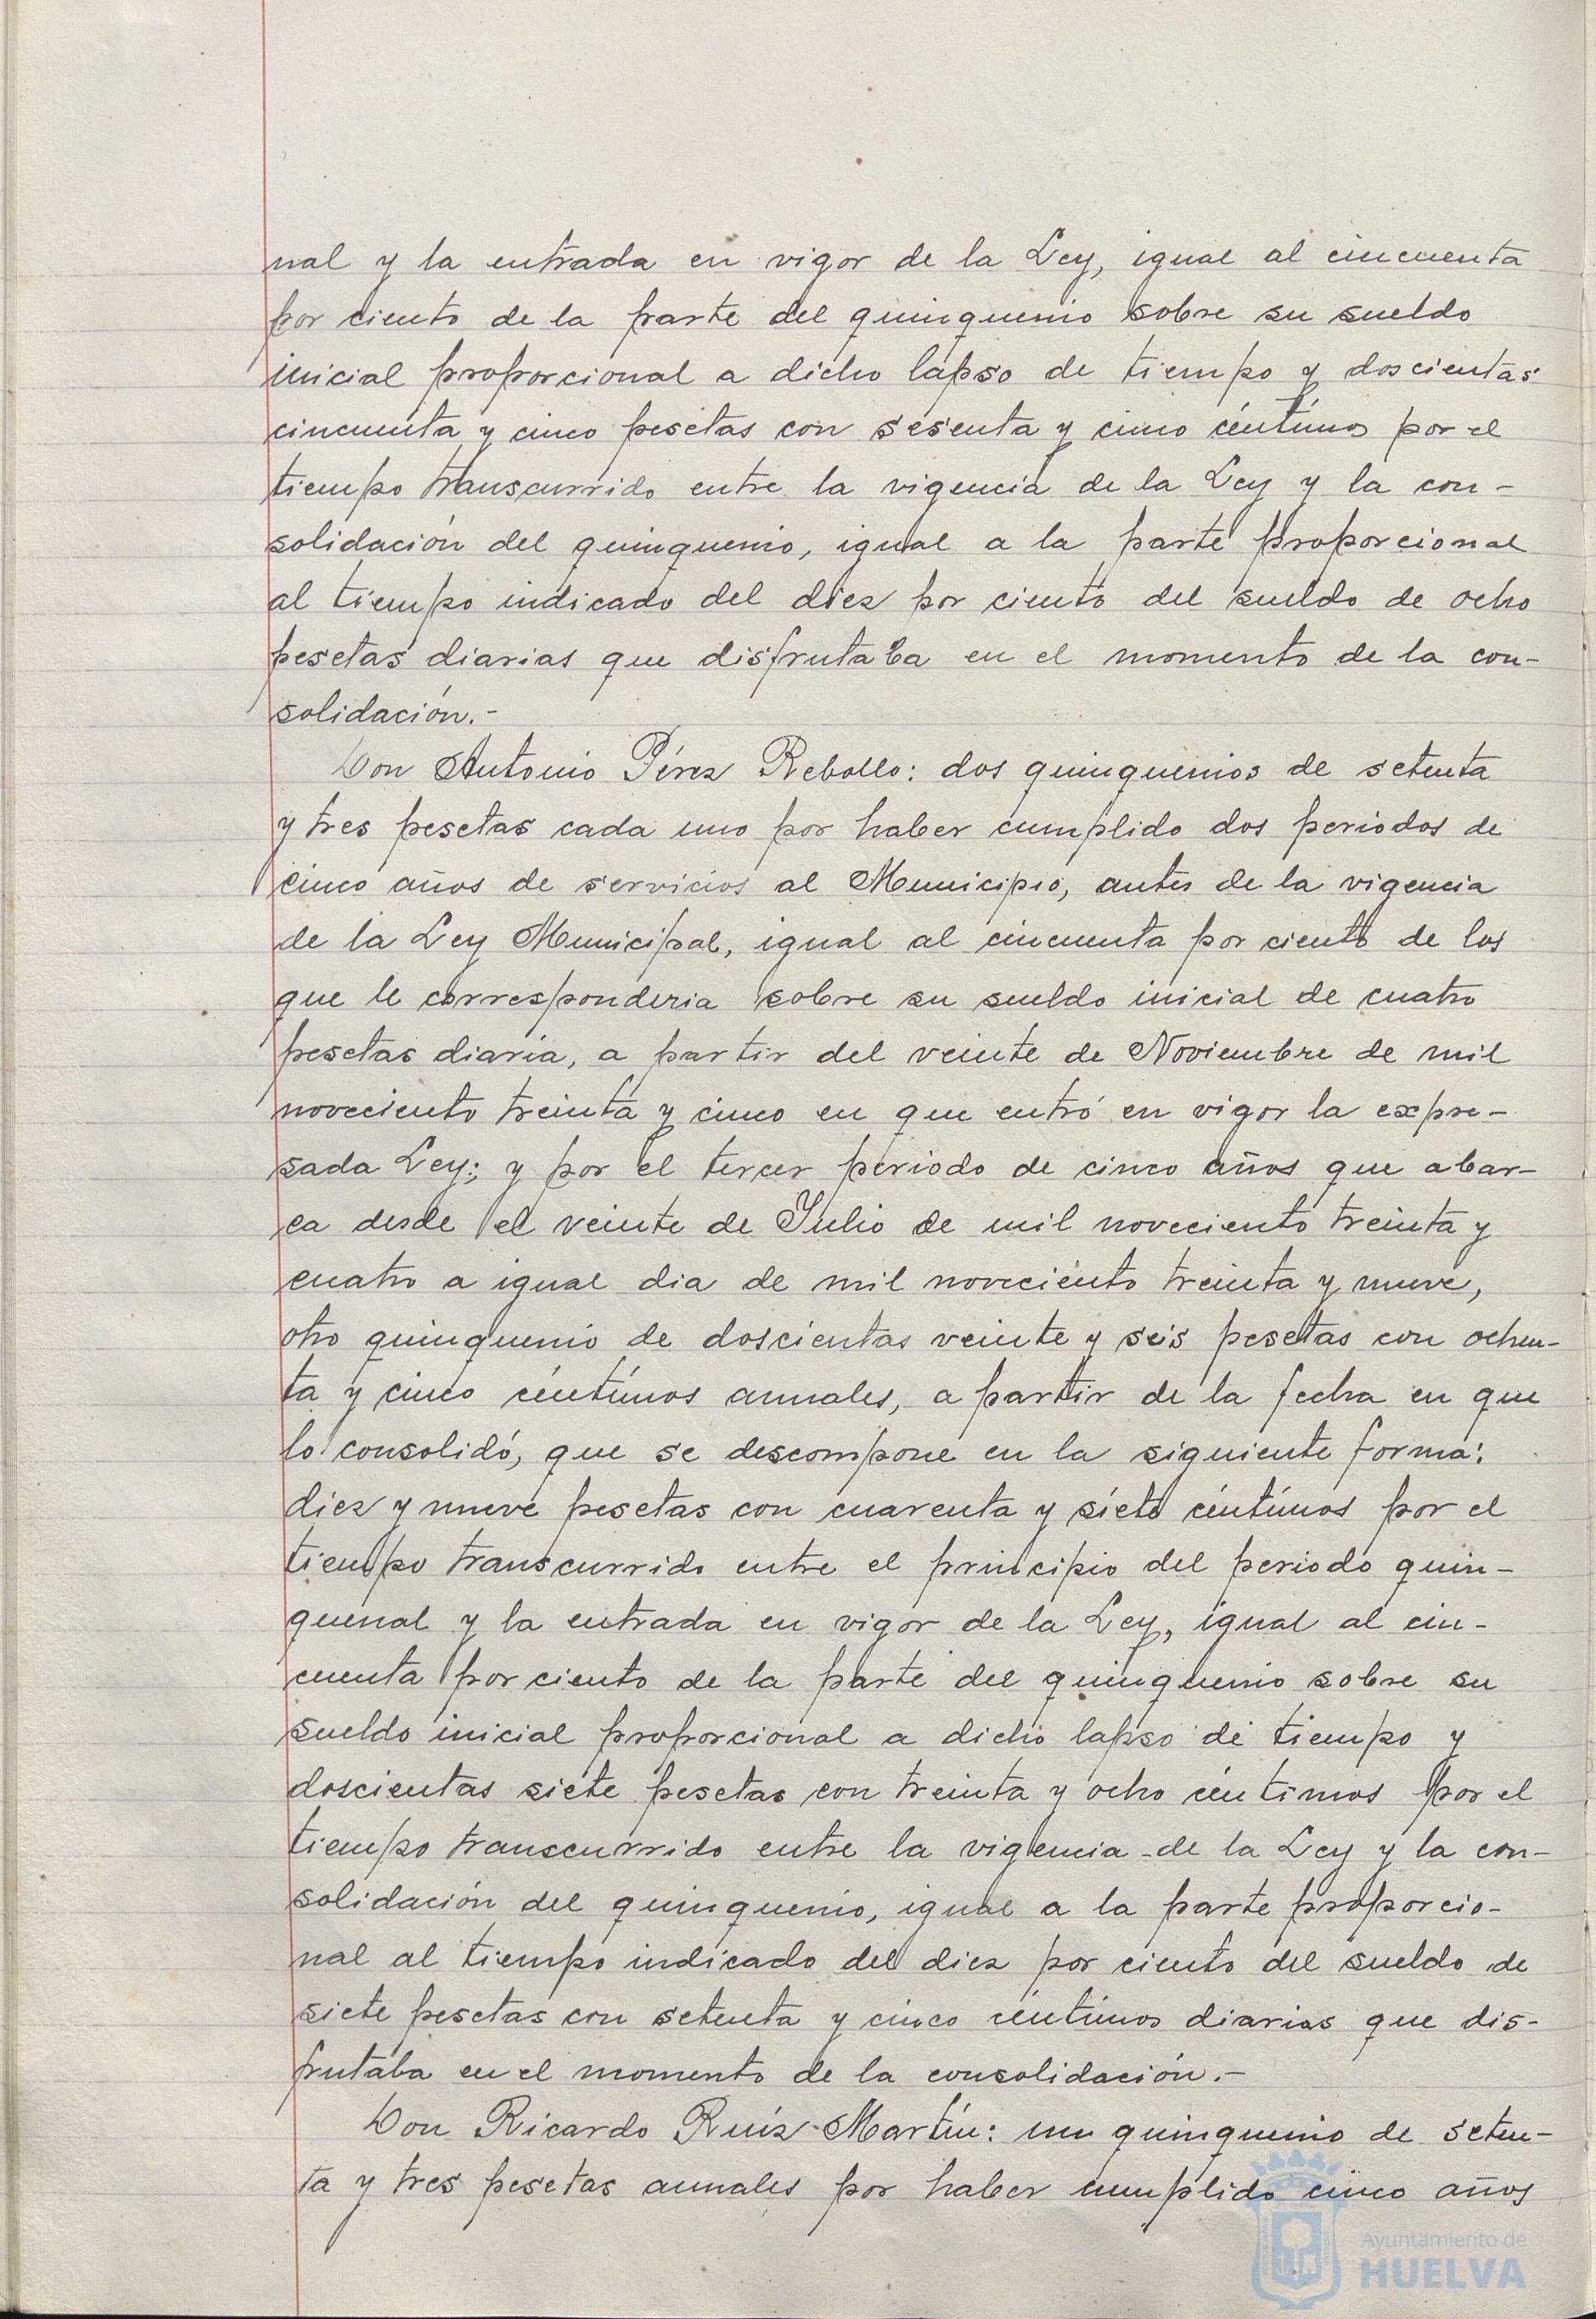 nal y la entrada en vigor de la Ley, igual al cincuenta
por ciento de la parte del quinquenio sobre su sueldo
inicial proporcional a dicho lapso de tiempo y doscientas
cincuenta y cinco pesetas con sesenta y cinco céntimos por el
tiempo transcurrido entre la vigencia de la Ley y la con-
solidación del quinquenio, igual a la parte proporcional
al tiempo indicado del diez por ciento del sueldo de ocho
pesetas diarias que disfrutaba en el momento de la con-
solidación.-
Don Antonio Pérez Rebollo: dos quinquenios de setenta
y tres pesetas cada uno por haber cumplido dos periodos de
cinco años de servicios al Municipio, antes de la vigencia
de la Ley Municipal, igual al cincuenta por ciento de los
que le corresponderia sobre su sueldo inicial de cuatro
pesetas diaria, a partir del veinte de Noviembre de mil
noveciento treinta y cinco en que entró en vigor la expre-
sada Ley; y por el tercer periodo de cinco años que abar-
ca desde el veinte de Julio de mil noveciento treinta y
cuatro a igual dia de mil noveciento treinta y nueve,
otro quinquenio de doscientas veinte y seis pesetas con ochen-
ta y cinco céntimos anuales, a partir de la fecha en que
lo consolidó, que se descompone en la siguiente forma:
diez y nueve pesetas con cuarenta y siete céntimos por el
tiempo transcurrido entre el principio del periodo quin-
quenal y la entrada en vigor de la Ley, igual al cin-
cuenta por ciento de la parte del quinquenio sobre su
sueldo inicial proporcional a dicho lapso de tiempo y
doscientas siete pesetas con treinta y ocho céntimos por el
tiempo transcurrido entre la vigencia de la Ley y la con-
solidación del quinquenio, igual a la parte proporcio-
nal al tiempo indicado del diez por ciento del sueldo de
siete pesetas con setenta y cinco céntimos diarias que dis-
frutaba en el momento de la consolidación.-
Don Ricardo Ruíz Martín: un quinquenio de seten-
ta y tres pesetas anuales por haber cumplido cinco años
Ayuntamiento de
HUELVA